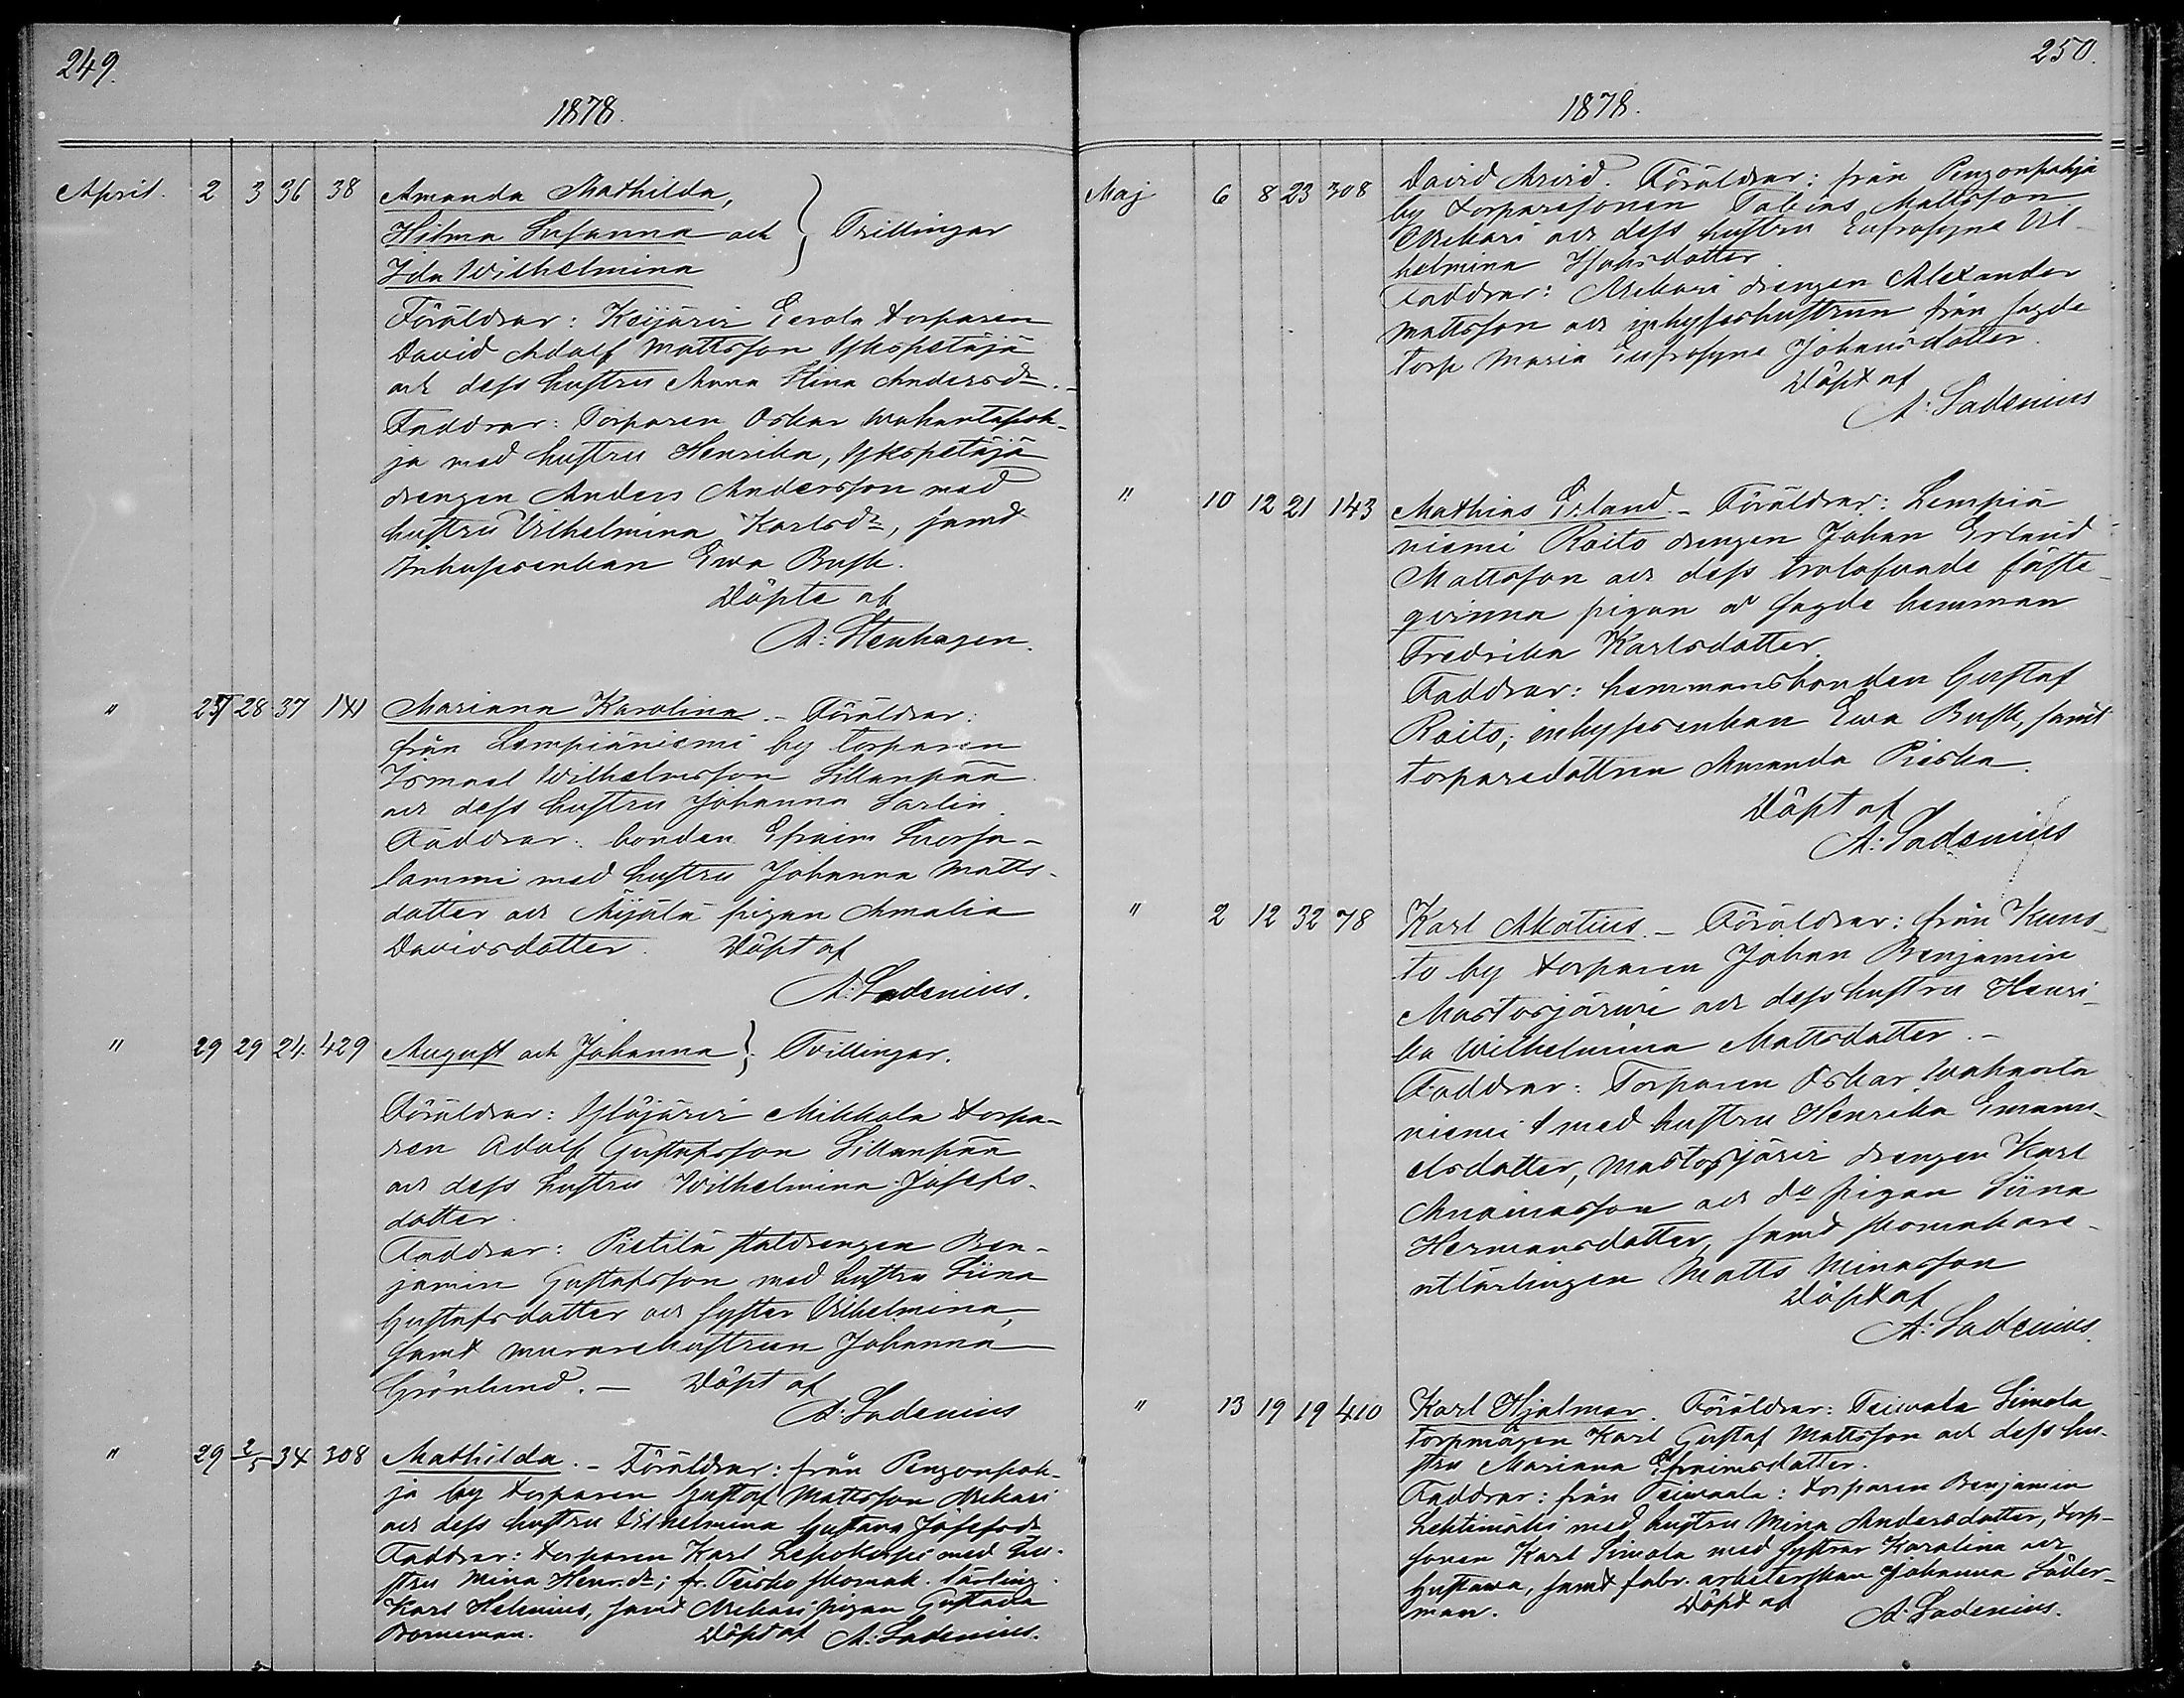 249.
1878.
April. 2 3 36 38 Amanda Mathilda,
Hilma Susanna och } Trillingar
Ida Wilhelmina
Föräldrar: Keijärvi Eerola torparen
David Adolf Mattsson Ykspetäjä
och dess hustru Anna Stina Andersdr.
Faddrar: Torparen Oskar Wahantapoh-
ja med hustru Henrika, Ykspetäjä
drengen Anders Andersson med
hustru Vilhelmina Karlsdr, samt
Inhysesenkan Ewa Rusk.
Döpte af
A: Stenhagen.
" 28 37 141 Mariana Karolina. - Föräldrar:
från Lempiäniemi by torparen
Ismael Wilhelmsson Sillanpää
och dess hustru Johanna Sarlin.
Faddrar: bonden Efraim Suorsa-
lammi med hustru Johanna Matts-
dotter och Äijälä pigan Amalia
Davidsdotter. Döpt af
A: Ladenius.
" 29 29 24. 429 August och Johanna }. Tvillingar.
Föräldrar: Ylöjärvi Mikkola torpa-
ren Adolf Gustafsson Sillanpää
och dess hustru Wilhelmina Josefs-
dotter.
Faddrar: Pietilä staldrengen Ben-
jamin Gustafsson med hustru Siina
Gustafsdotter och syster Vilhelmina,
samt murarehustrun Johanna
Grönlund. - Döpt af
A: Ladenius
" 29 2/5 34 308 Mathilda. - Föräldrar: från Pengonpoh-
ja by torparen Gustaf Mattsson Mekari
och dess hustru Vilhelmina Gustava Josefsdr
Faddrar: torparen Karl Lepokorpi med hu-
stru Mina Henr.dr; fr. Teisko skomak. lärling
Karl Helenius, samt Mekari pigan Gustava
Borneman. Döpt af A: Ladenius.
250.
1878.
Maj 6 8 23 308 David Arvid. Föräldrar: från Pengonpohja
by torparesonen Tobias Mattsson
Mekari och dess hustru Eufrosyne Vil-
helmina Isaksdotter
Faddrar: Mekari drengen Alexander
Mattsson och inhyseshustrun från sagde
torp Maria Eufrosyne Johansdotter.
Döpt af
A: Ladenius
" 10 12 21 143 Mathias Erland. - Föräldrar: Lempiä
niemi Raito drengen Johan Erland
Mattsson och dess trolofvade fäste-
qvinna pigan å sagde hemman
Fredrika Karlsdotter.
Faddrar: hemmansbonden Gustaf
Raito, inhysesenkan Ewa Rusk, samt
torparedottren Amanda Pieska.
Döpt af
A: Ladenius
" 2 12 32 78 Karl Matius. - Föräldrar: från Kuus-
to by torparen Johan Benjamin
Mastosjärwi och dess hustru Henri-
ka Wilhelmina Mattsdotter. -
Faddrar: Torparen Oskar Wahanta
niemi med hustru Henrika Emanu-
elsdotter, Mastosjärvi drengen Karl
Ananiasson och do pigan Siina
Hermansdotter, samt skomakare-
utlärlingen Matts Minasson
Döpt af
A: Ladenius.
" 13 19 19 410 Karl Hjalmar. Föräldrar: Teiwala Simola
torpmågen Karl Gustaf Mattsson och dess hu-
stru Mariana Efraimsdotter.
Faddrar: från Teiwaala: torparen Benjamin
Lehtimäki med hustru Mina Andersdotter, torp-
sonen Karl Simola med systrar Karolina och
Gustawa, samt fabr. arbeterskan Johanna Söder-
man. Döpt af A: Ladenius.